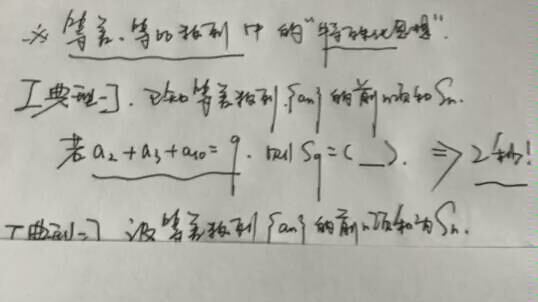 ※ 等差、等比数列中的“特殊化思想”.
[典型一]. 已知等差数列{an}的前n项和Sn.
若a₂+a₃+a₁₀=9. 则S₉=(__). ⇒ 2秒!
[典型二] 设等差数列{an}的前n项和为Sn.